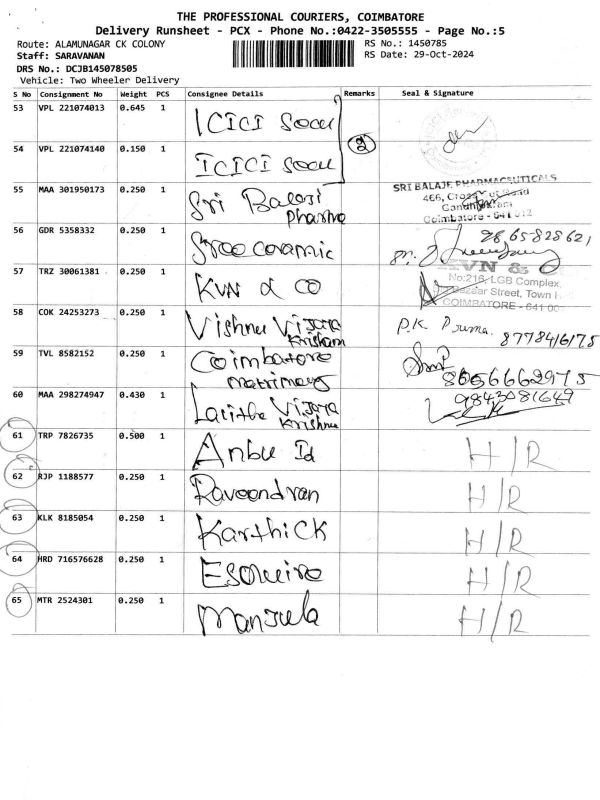 THE PROFESSIONAL COURIERS, COIMBATORE
Delivery Runsheet - PCX - Phone No.:0422-3505555 - Page No.:5
Route: ALAMUNAGAR CK COLONY
RS No.: 1450785
Staff: SARAVANAN
RS Date: 29-Oct-2024
DRS No.: DCJB145078505
Vehicle: Two Wheeler Delivery
S No Consignment No Weight PCS Consignee Details Remarks Seal & Signature
53 VPL 221074013 0.645 1 ICICI
54 VPL 221074140 0.150 1 ICICI
55 MAA 301950173 0.250 1 Sri Balaji
Pharma
SRI BALAJE PHARMACEUTICALS
466, Cross Cut Road
Coimbatore - 641 012
56 GDR 5358332 0.250 1 Sree ceramic
57 TRZ 30061381 0.250 1 KVN & CO
KVN &
No:216, LGB Complex,
Bazaar Street, Town
COIMBATORE - 641 00
58 COK 24253273 0.250 1 Vishnu Vijaya
Krishna
P.K
8778416175
59 TVL 8582152 0.250 1 Coimbatore
matrimony
8056662975
60 MAA 298274947 0.430 1 Lalitha Vijaya
Krishna
9843081649
61 TRP 7826735 0.500 1 Anbu Id H/R
62 RJP 1188577 0.250 1 Raveendran H/R
63 KLK 8185054 0.250 1 Karthick H/R
64 HRD 716576628 0.250 1 Esquire H/R
65 MTR 2524301 0.250 1 Manjula H/R